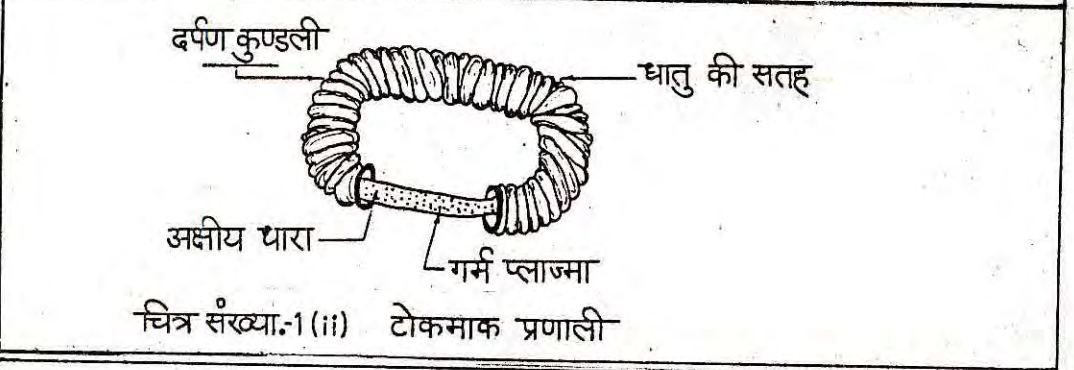 दर्पण कुण्डली
धातु की सतह
अक्षीय धारा
गर्म प्लाज्मा
चित्र संख्या.-1(ii) टोकमाक प्रणाली